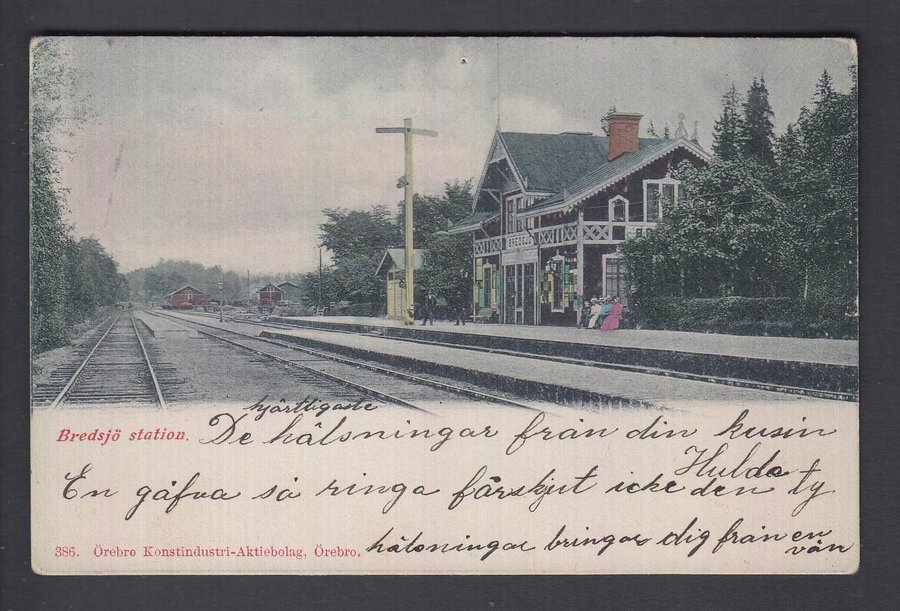 BREDSJÖ
hjärtligaste
Bredsjö station. De hälsningar från din kusin
Hulda
En gåfva så ringa förskjut icke den ty
386. Örebro Konstindustri-Aktiebolag, Örebro. hälsningar bringas dig från en
vän